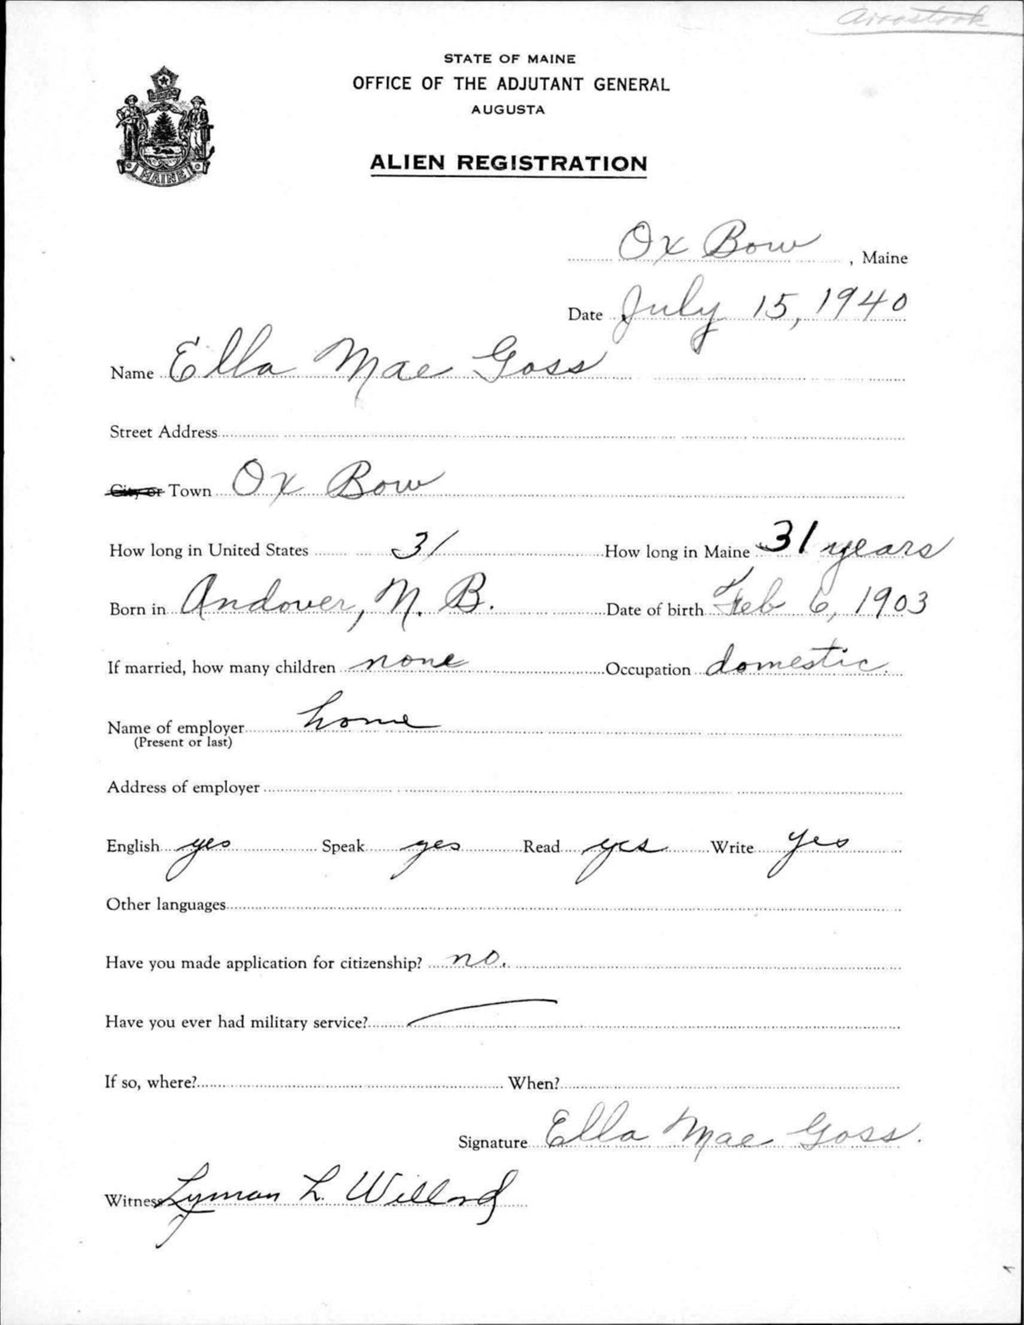 Aroostook
STATE OF MAINE
OFFICE OF THE ADJUTANT GENERAL
AUGUSTA
MAINE
ALIEN REGISTRATION
Ox Bow, Maine
Date July 15, 1940
Name Ella Mae Goss
Street Address
City or Town Ox Bow
How long in United States 31 How long in Maine 31 years
Born in Andover, N. B. Date of birth Feb 6, 1903
If married, how many children none Occupation domestic.
Name of employer home
(Present or last)
Address of employer
English yes Speak yes Read yes Write yes
Other languages
Have you made application for citizenship? no.
Have you ever had military service?
If so, where? When?
Signature Ella Mae Goss.
Witness Lyman L. Willard